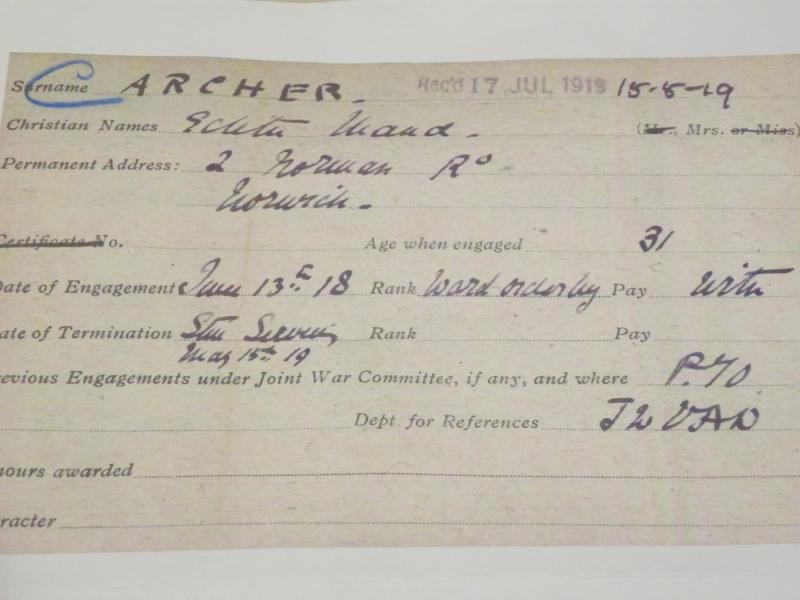 Surname ARCHER. Rec'd 17 JUL 1919 15-5-19
Christian Names Edith Maud. (Mr., Mrs. or Miss)
Permanent Address: 2 Norman Rd
Norwich.
Certificate No. Age when engaged 31
Date of Engagement June 13th 18 Rank Ward orderly Pay with
ate of Termination Still Serving Rank Pay
May 15th 19
revious Engagements under Joint War Committee, if any, and where P.70
Dept for References J2 VAD
nours awarded
racter